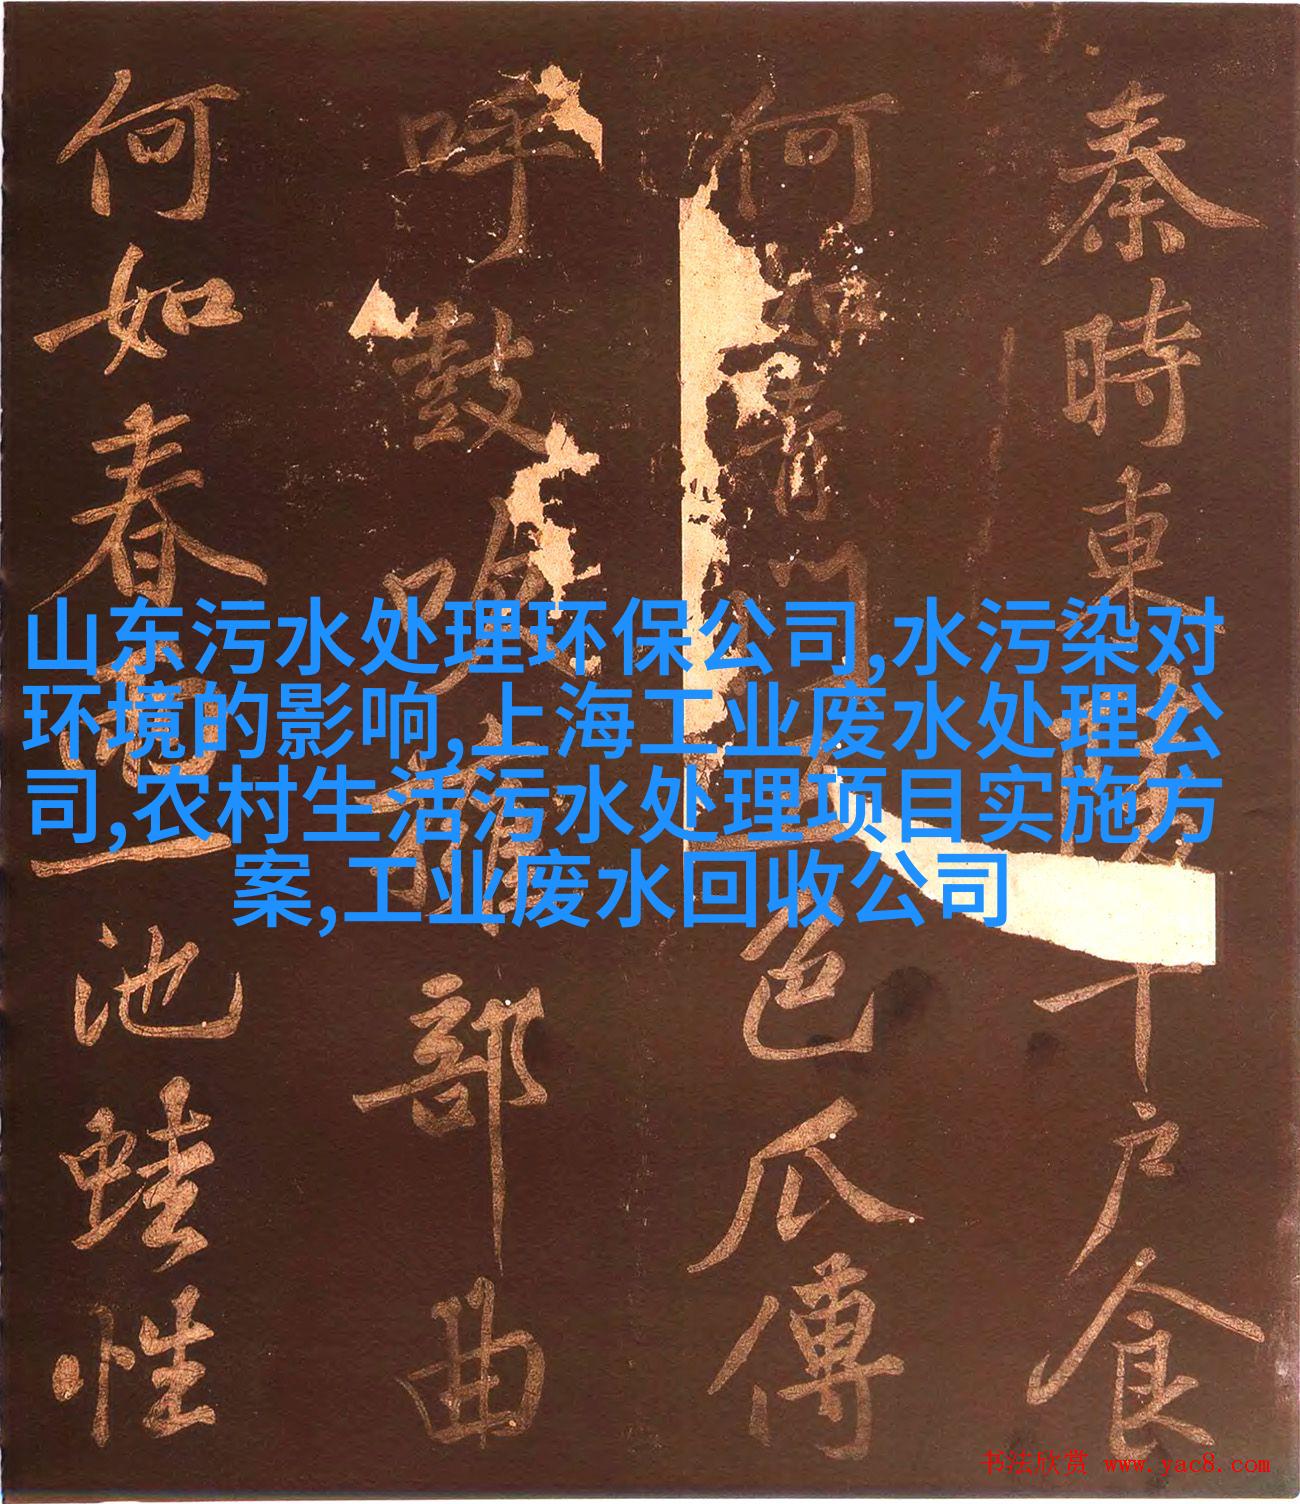 山东污水处理环保公司,水污染对
环境的影响,上海工业废水处理公
司,农村生活污水处理项目实施方
案,工业废水回收公司
秦時東陵千戶食
何如青門五色瓜傅
呼鼓吹部曲
何如春一池蛙性
书法欣赏 www.yac8.com